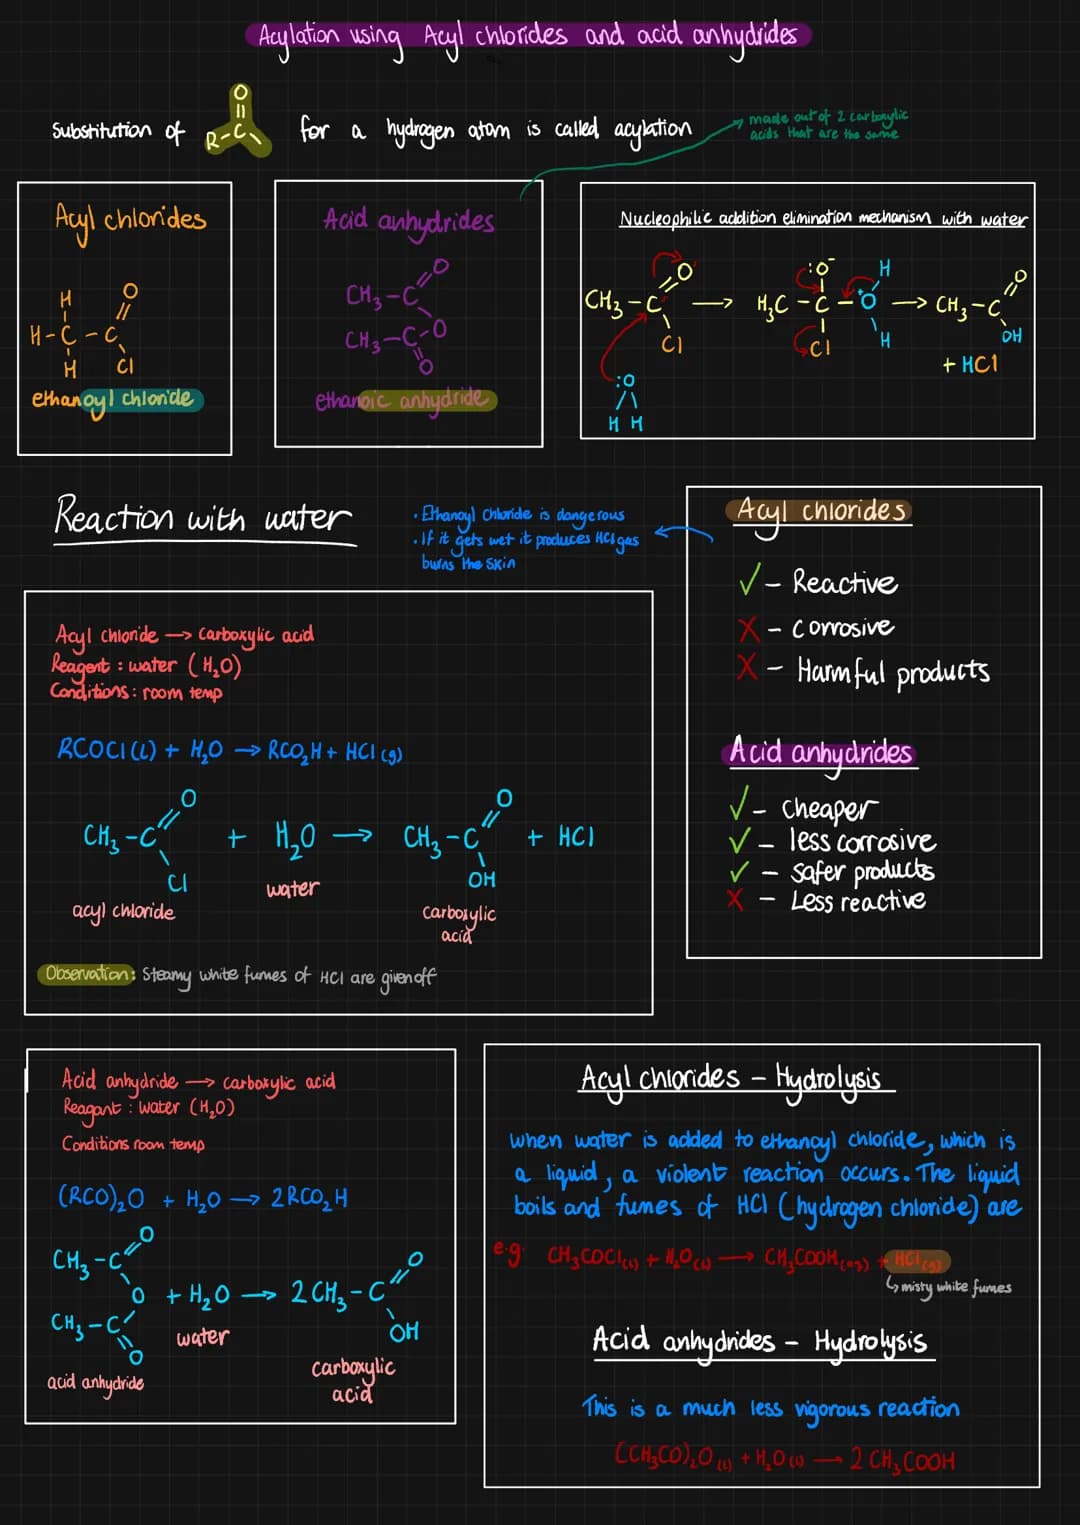 Acylation using Acyl chlorides and acid anhydrides
Substitution of R-C=O for a hydrogen atom is called acylation
made out of 2 carboxylic
acids that are the same
Acyl chlorides
H
O
H-C-C
H
Cl
ethanoyl chloride
Acid anhydrides
O
CH₃-C
O
CH₃-C
O
ethanoic anhydride
Nucleophilic addition elimination mechanism with water
CH₃-C
O
Cl
:O
H H
→
:O⁻
H₃C-C-O⁺
H
H
Cl
→
CH₃-C
O
OH
+ HCl
Reaction with water
· Ethanoyl Chloride is dangerous
· If it gets wet it produces HCl gas
burns the skin
Acyl chloride → carboxylic acid
Reagent : water (H₂O)
Conditions : room temp
RCOCl (l) + H₂O → RCO₂H + HCl (g)
O
CH₃-C
Cl
+ H₂O →
O
CH₃-C
OH
+ HCl
acyl chloride
water
carboxylic
acid
Observation: Steamy white fumes of HCl are given off
Acyl chlorides
✓ - Reactive
X - corrosive
X - Harmful products
Acid anhydrides
✓ - cheaper
✓ - less corrosive
✓ - safer products
X - Less reactive
Acid anhydride → carboxylic acid
Reagant : water (H₂O)
Conditions room temp
(RCO)₂O + H₂O → 2RCO₂H
O
CH₃-C
O
CH₃-C
O
+ H₂O → 2CH₃-C
O
OH
acid anhydride
water
carboxylic
acid
Acyl chlorides - Hydrolysis
when water is added to ethanoyl chloride, which is
a liquid, a violent reaction occurs. The liquid
boils and fumes of HCl (hydrogen chloride) are
e.g. CH₃COCl(l) + H₂O(l) → CH₃COOH(aq) + HCl(g)
↳ misty white fumes
Acid anhydrides - Hydrolysis
This is a much less vigorous reaction
(CH₃CO)₂O (l) + H₂O (l) → 2 CH₃COOH